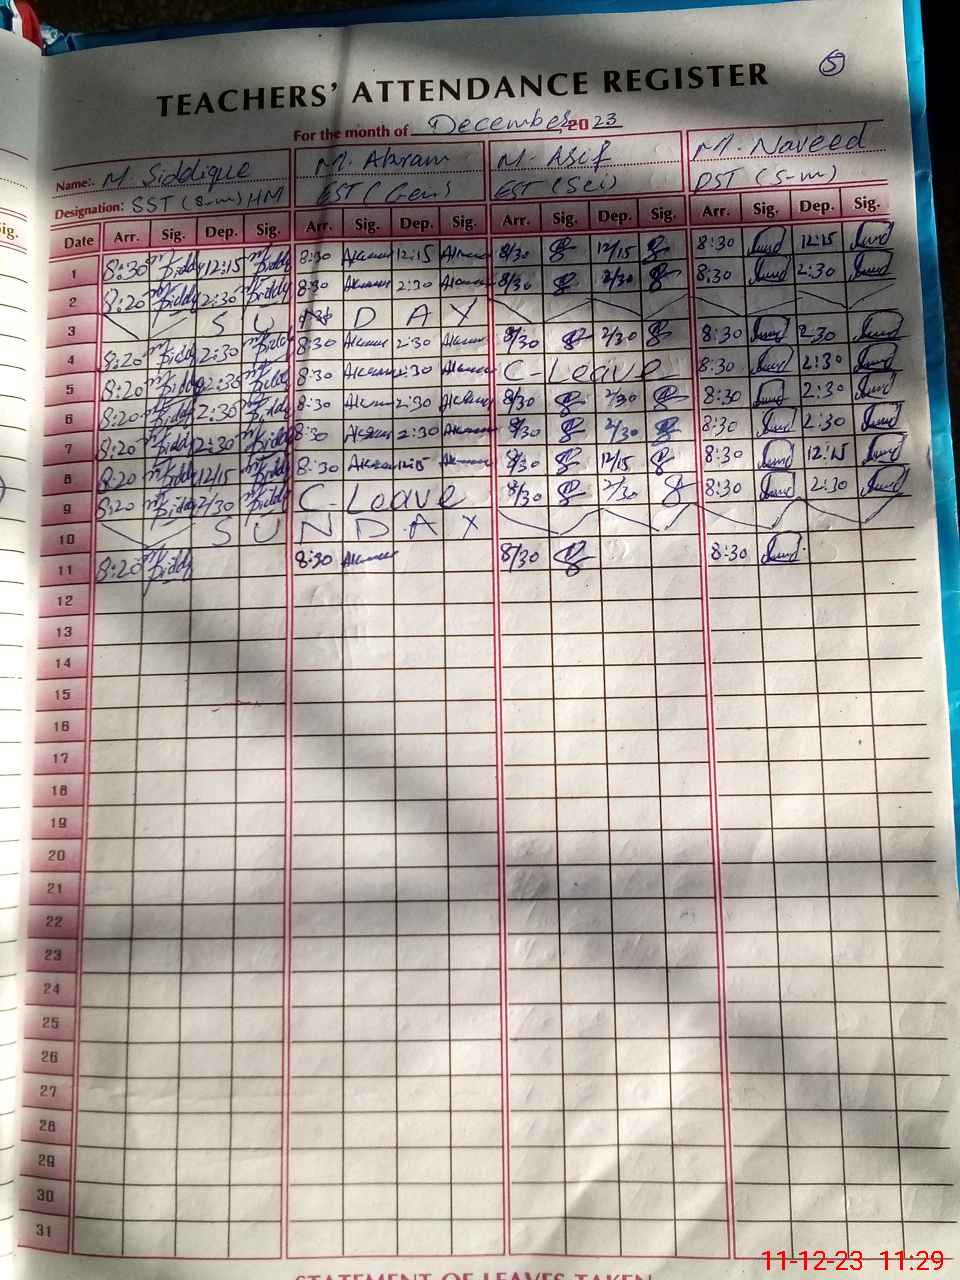 5
TEACHERS' ATTENDANCE REGISTER
For the month of December, 2023
Name:. M. Siddique M. Akram M. Asif M. Naveed
Designation: SST (S-m) HM EST (Gen) EST (Sci) PST (S-m)
ig.
Date Arr. Sig. Dep. Sig. Arr. Sig. Dep. Sig. Arr. Sig. Dep. Sig. Arr. Sig. Dep. Sig.
1 8:30 12:15 8:30 Akram 12:15 Akram 8/30 12/15 8:30 12:15
2 8:20 2:30 8:30 Akram 2:30 Akram 8/30 2/30 8:30 2:30
3 S U D A Y
4 8:20 2:30 8:30 Akram 2:30 Akram 8/30 2/30 8:30 2:30
5 8:20 2:30 8:30 Akram 2:30 Akram C-Leave 8:30 2:30
6 8:20 2:30 8:30 Akram 2:30 Akram 8/30 2/30 8:30 2:30
7 8:20 2:30 8:30 Akram 2:30 Akram 8/30 2/30 8:30 2:30
8 8:20 12/15 8:30 Akram 12:15 Akram 8/30 12/15 8:30 12:15
9 8:20 2/30 C-Leave 8/30 2/30 8:30 2:30
10 S U N D A Y
11 8:20 8:30 Akram 8/30 8:30
12
13
14
15
16
17
18
19
20
21
22
23
24
25
26
27
28
29
30
31
STATEMENT OF LEAVES TAKEN
11-12-23 11:29